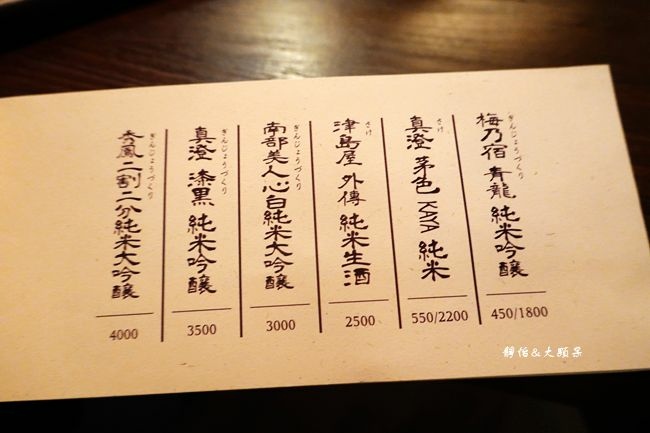 梅乃宿 青龍 純米吟醸
ぎんじょうづくり
450/1800
真澄 茅色 KAYA 純米
さけ
550/2200
津島屋 外傳 純米生酒
さけ
2500
南部美人心白純米大吟醸
ぎんじょうづくり
3000
真澄 漆黒 純米吟醸
ぎんじょうづくり
3500
秀鳳二割二分純米大吟醸
ぎんじょうづくり
4000